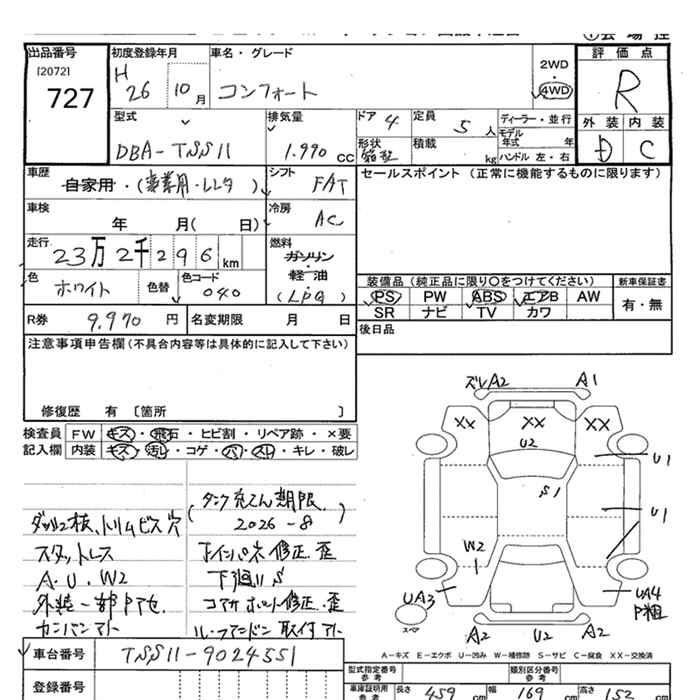 出品番号
[2072]
727
初度登録年月
H 26 10 月
車名・グレード
コンフォート
2WD
・
4WD
評価点
R
外装 内装
D C
型式
DBA-TSS11
排気量
1.990 cc
ドア 4
形状
箱型
定員
5 人
積載
kg
ディーラー・並行
モデル
年式 年
ハンドル 左・右
車歴
自家用・(事業用・レンタ)
シフト
FAT
セールスポイント(正常に機能するものに限ります)
車検
年 月( 日)
冷房
AC
走行
23万2千296 km
燃料
ガソリン
軽油
(LPG)
色
ホワイト
色替
色コード
040
装備品(純正品に限り〇をつけてください)
新車保証書
PS PW ABS エアB AW
SR ナビ TV カワ
有・無
R券 9.970 円
名変期限 月 日
後日品
注意事項申告欄(不具合内容等は具体的に記入して下さい)
修復歴 有 〔箇所 〕
検査員 FW キズ・飛石・ヒビ割・リペア跡・×要
記入欄 内装 キズ・汚レ・コゲ・穴・スレ・キレ・破レ
ズレA2 A1
XX XX XX
U2
U1
S1
U1
W2
UA3
UA4
P粗
スペア
A2 U2 A2
(タンク充てん期限
2026-8)
ダッシュ板、トリムビス穴
スタットレス
A・U・W2
外装一部Pアセ
カンバンアト
インパネ修正・歪
下廻りS
コアサポート修正・歪
ルーフアンドン取付アト
A-キズ E-エクボ U-凹み W-補修跡 S-サビ C-腐食 XX-交換済
車台番号 TSS11-9024551
登録番号
型式指定番号
類別区分番号
車庫証明用
参考
長さ 459 cm 幅 169 cm 高さ 152 cm